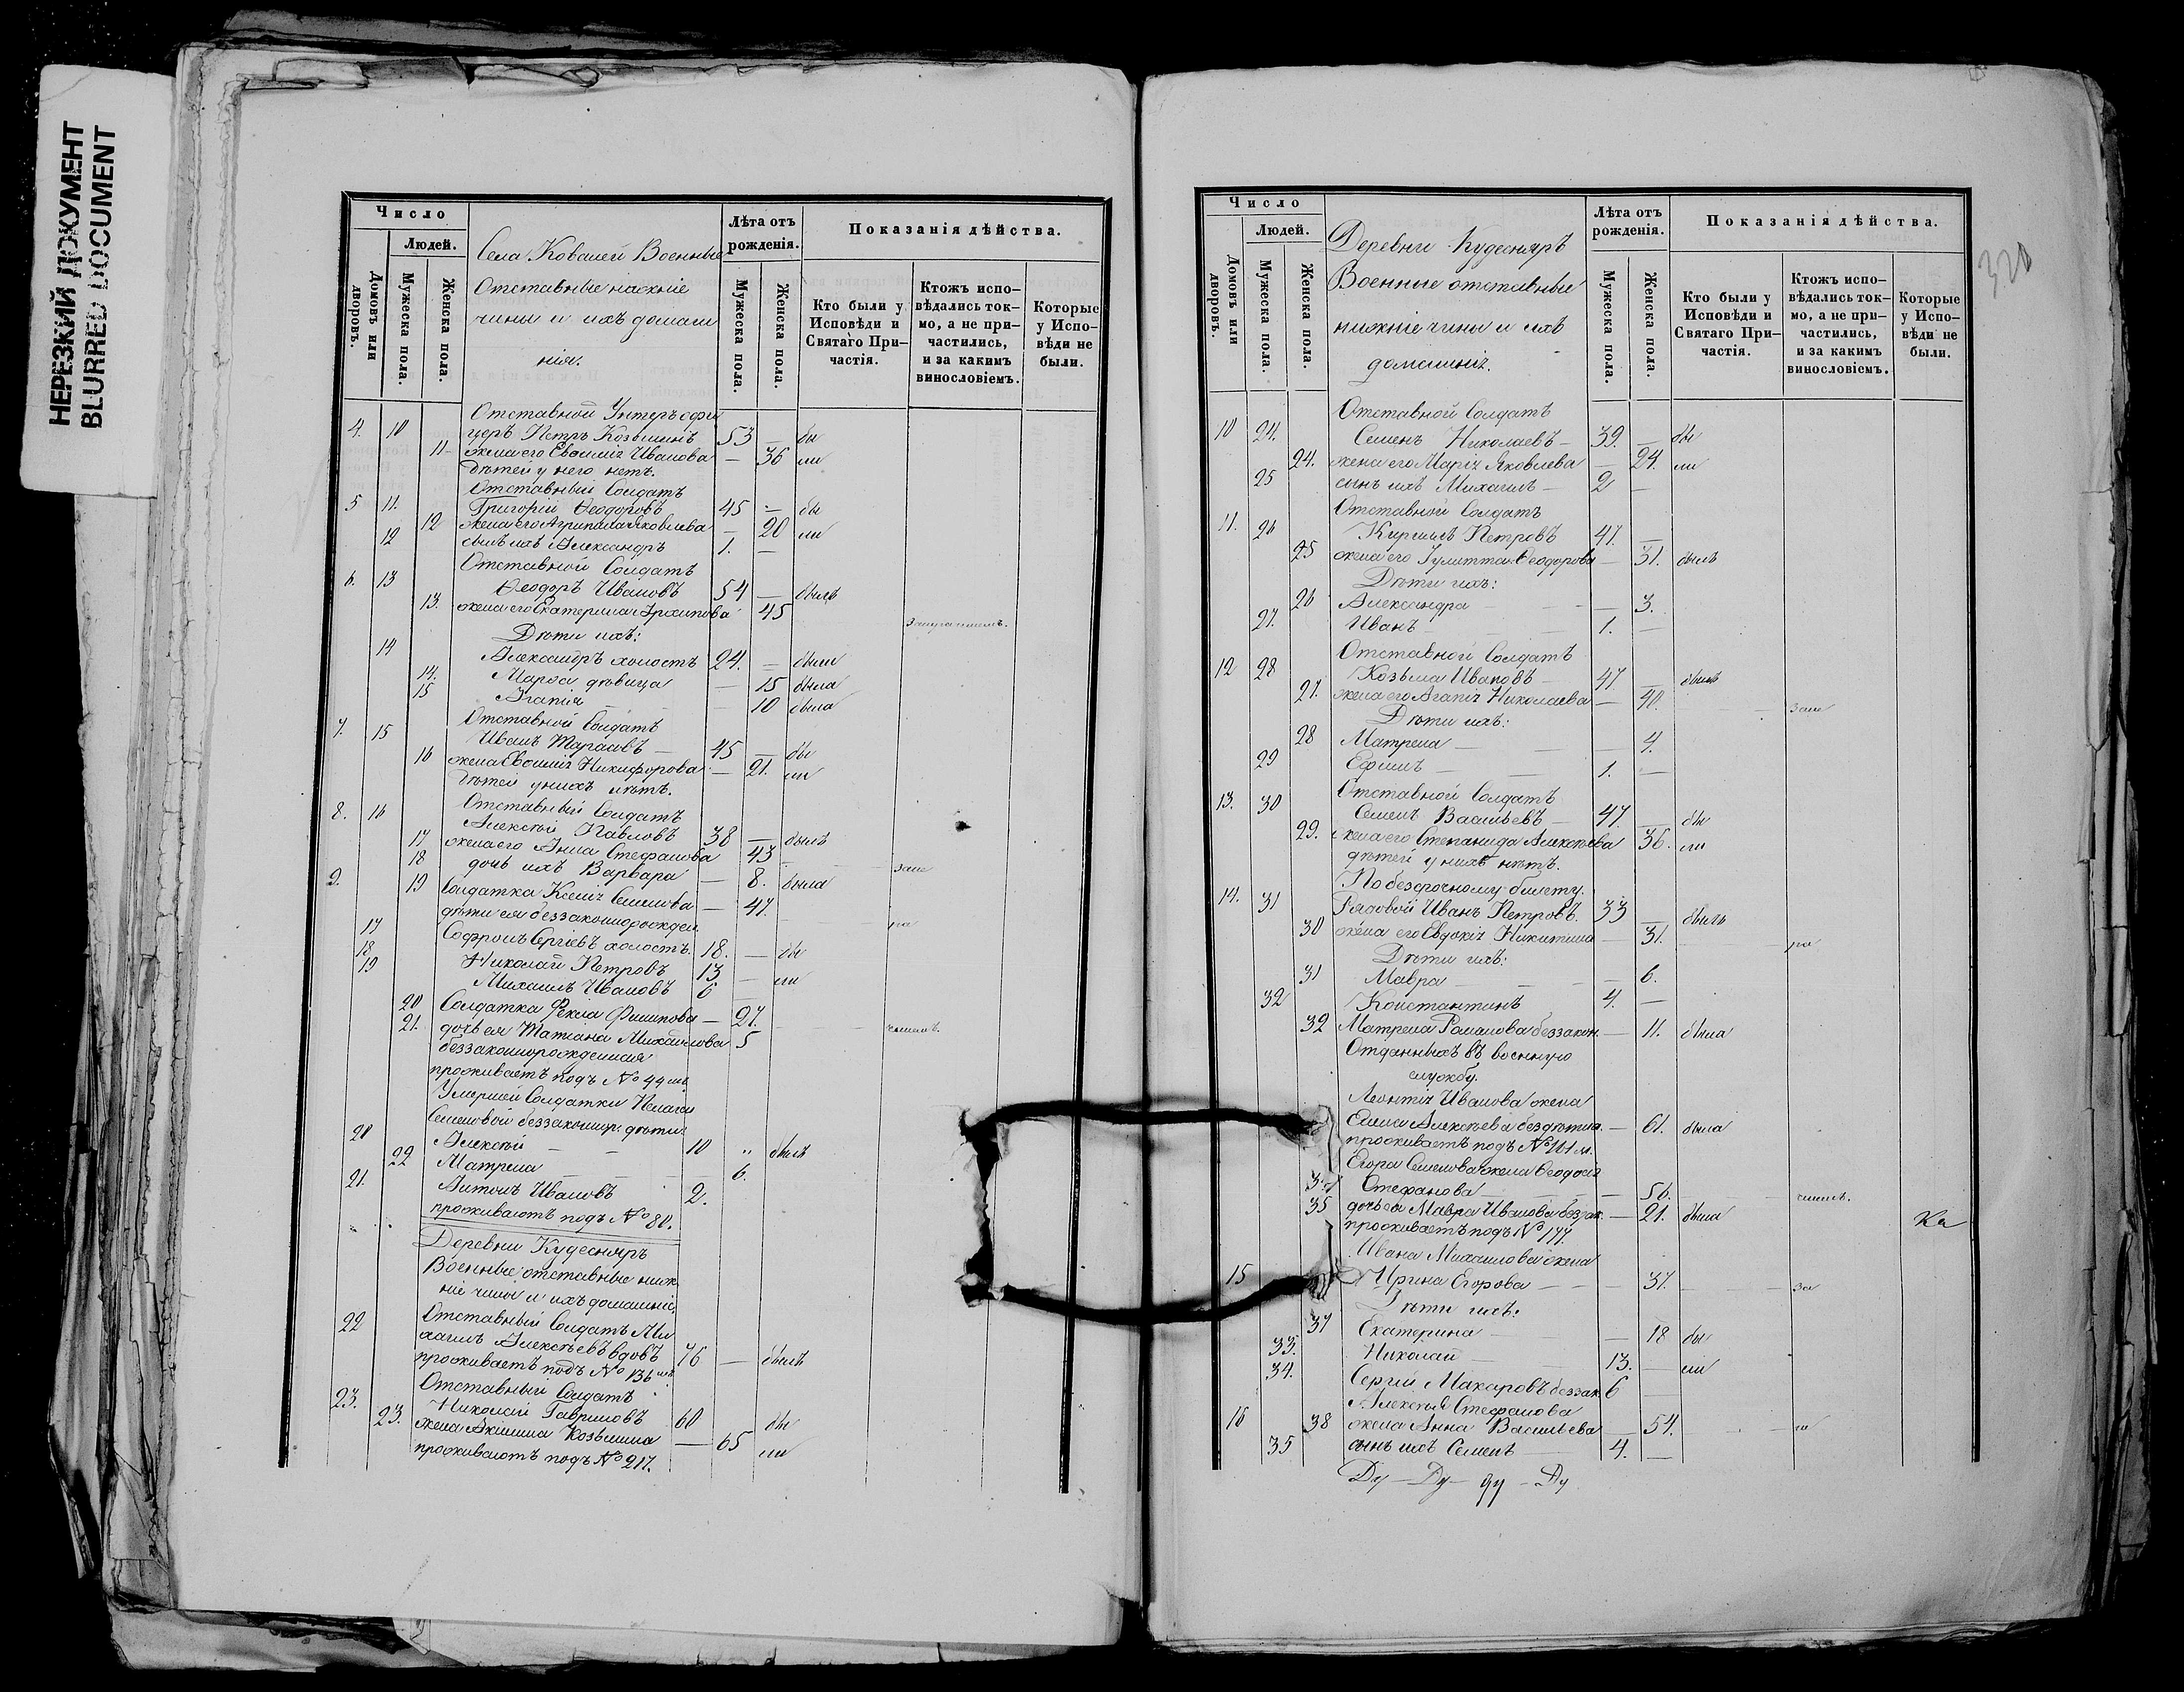 НЕРЕЗКИЙ ДОКУМЕНТ
BLURRED DOCUMENT
Число
Людей.
Домовъ или дворовъ.
Мужеска пола.
Женска пола.
Села Ковалей Военные
Отставные нижніе
чины и ихъ домаш
нія.
Лѣта отъ рожденія.
Мужеска пола.
Женска пола.
Показанія дѣйства.
Кто были у Исповѣди и Святаго Причастія.
Ктожъ исповѣдались токмо, а не причастились, и за какимъ винословіемъ.
Которые у Исповѣди не были.
Отставной Унтеръ офи
4. 10 церъ Петръ Козьминъ 53 — бы
11 жена его Евѳимія Иванова — 36 ли
Дѣтей у него нетъ.
Отставный Солдатъ
5 11. Григорій Ѳеодоровъ 45 — бы
12 жена его Агрипина Яковлева — 20 ли
12 сынъ ихъ Александръ 1. —
Отставной Солдатъ
6. 13 Ѳеодоръ Ивановъ 54 — былъ
13. жена его Екатерина Архипова 45
Дѣти ихъ:
14 Александръ холостъ 24. — были
14. Марѳа дѣвица — 15 была
15 Агапія — 10 была
Отставной Солдатъ
7. 15 Иванъ Тарасовъ — 45 — бы
16 жена Евѳимія Никифорова — 21. ли
Дѣтей у нихъ нѣтъ.
Отставный Солдатъ
8. 16 Алексѣй Павловъ 38 — былъ
17 жена его Анна Стефанова 43
18 дочь ихъ Варвара — 8. была
9. 19 Солдатка Ксенія Семенова — 47.
дѣти ея беззаконорожден.
17 Софронъ Сергіевъ холостъ. 18. — бы
18. Николай Петровъ 13 — ли
19 Михаилъ Ивановъ 6
20 Солдатка Фекла Филипова — 27.
21. дочь ея Татіана Михайлова 5
беззаконорожденная
проживаетъ подъ № 44мъ
Умершей Солдатки Пелагеи
Семеновой беззаконор. дѣти:
20 Алексѣй — 10 " былъ
22 Матрена — 6.
21. Антонъ Ивановъ 2.
проживаютъ подъ № 80.
Деревни Кудеснеръ
Военные отставные ниж
ніе чины и ихъ домашніе.
22 Отставный Солдатъ Ми
хаилъ Алексѣевъ вдовъ 76 — былъ
проживаетъ подъ № 136мъ
Отставный Солдатъ
23. Николай Гавриловъ 60 бы
23. жена Акилина Козьмина — 65 ли
проживаютъ подъ № 217.
Число
Людей.
Домовъ или дворовъ.
Мужеска пола.
Женска пола.
Деревни Кудеснеръ
Военные отставные
нижніе чины и ихъ
домашніе.
Лѣта отъ рожденія.
Мужеска пола.
Женска пола.
Показанія дѣйства.
Кто были у Исповѣди и Святаго Причастія.
Ктожъ исповѣдались токмо, а не причастились, и за какимъ винословіемъ.
Которые у Исповѣди не были.
Отставной Солдатъ
10 24. Семенъ Николаевъ — 39. — бы
24. жена его Марія Яковлева — 24. ли
25 сынъ ихъ Михаилъ — 2 —
Отставной Солдатъ
11. 26 Кирилъ Петровъ 47. —
25 жена его Іулитта Ѳеодорова — 31. былъ
Дѣти ихъ:
26 Александра — 3.
27. Иванъ — 1. —
Отставной Солдатъ
12 28 Козьма Ивановъ — 47. — былъ
27. жена его Агапія Николаева — 40.
Дѣти ихъ:
28 Матрена — 4.
29 Ефимъ — 1. —
Отставной Солдатъ
13. 30 Семенъ Васильевъ — 47. — бы
29. жена его Степанида Алексѣева 36. ли
дѣтей у нихъ нѣтъ.
По безсрочному билету.
14. 31 Рядовой Иванъ Петровъ. 33 — былъ
30 жена его Евдокія Никитина — 31.
Дѣти ихъ:
31 Мавра — 6.
32 Константинъ 4. —
32 Матрена Романова беззакон. — 11. была
Отданныхъ въ военную
службу.
Леонтія Иванова жена
Елена Алексѣева бездѣтна. — 61. была
проживаетъ подъ № 161м.
Егора Семенова жена Ѳеодосія
34 Стефанова — 56.
35 дочь ея Мавра Иванова беззак. — 21. была
проживаетъ подъ № 177.
Ивана Михаилова жена
15 Ирина Егорова — 37.
Дѣти ихъ:
37 Екатерина — 18 бы
33. Николай 13. — ли
34. Сергій Макаровъ беззак. 6 —
Алексѣя Стефанова
16 38 жена Анна Васильева — 54.
35 сынъ ихъ Семенъ 4. —